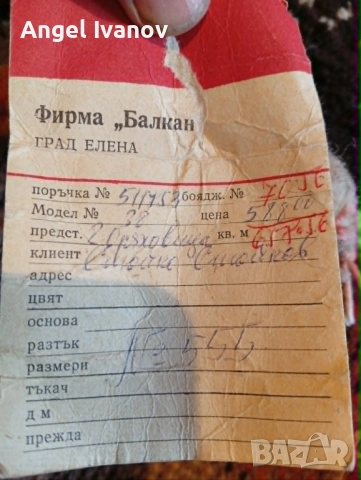 Angel Ivanov
Фирма „Балкан
ГРАД ЕЛЕНА
поръчка № 511753 боядж. №
Модел № 38 цена
предст. Г. Оряховица кв. м
клиент Стойчо Стойков
адрес
цвят
основа
разтък № 555
размери
тъкач
д м
прежда
BAZAR
bg